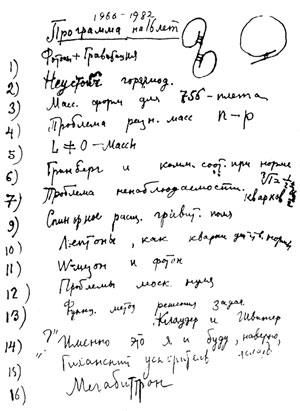 1966-1982
Программа на 16 лет
1) Фотон + Гравитация
2) Неустойч гороmод.
3) Масс. форм для 756-плета
4) Проблема разн. масс n-p
5) L ≠ 0 - Массы
6) Гринберг и комм. соот. при норме
7) Проблема ненаблюдаемости кварков
9) Спинорное расщ. гравит. поля
10) Лептоны, как кварки
11) W-мезон и фотон
12) Проблемы моск нуля
13) Функц. метод решения задач.
Клаудер и Швингер
14) "?" Именно это я и буду, наверно,
15) ускоритель
16) Мегабитрон